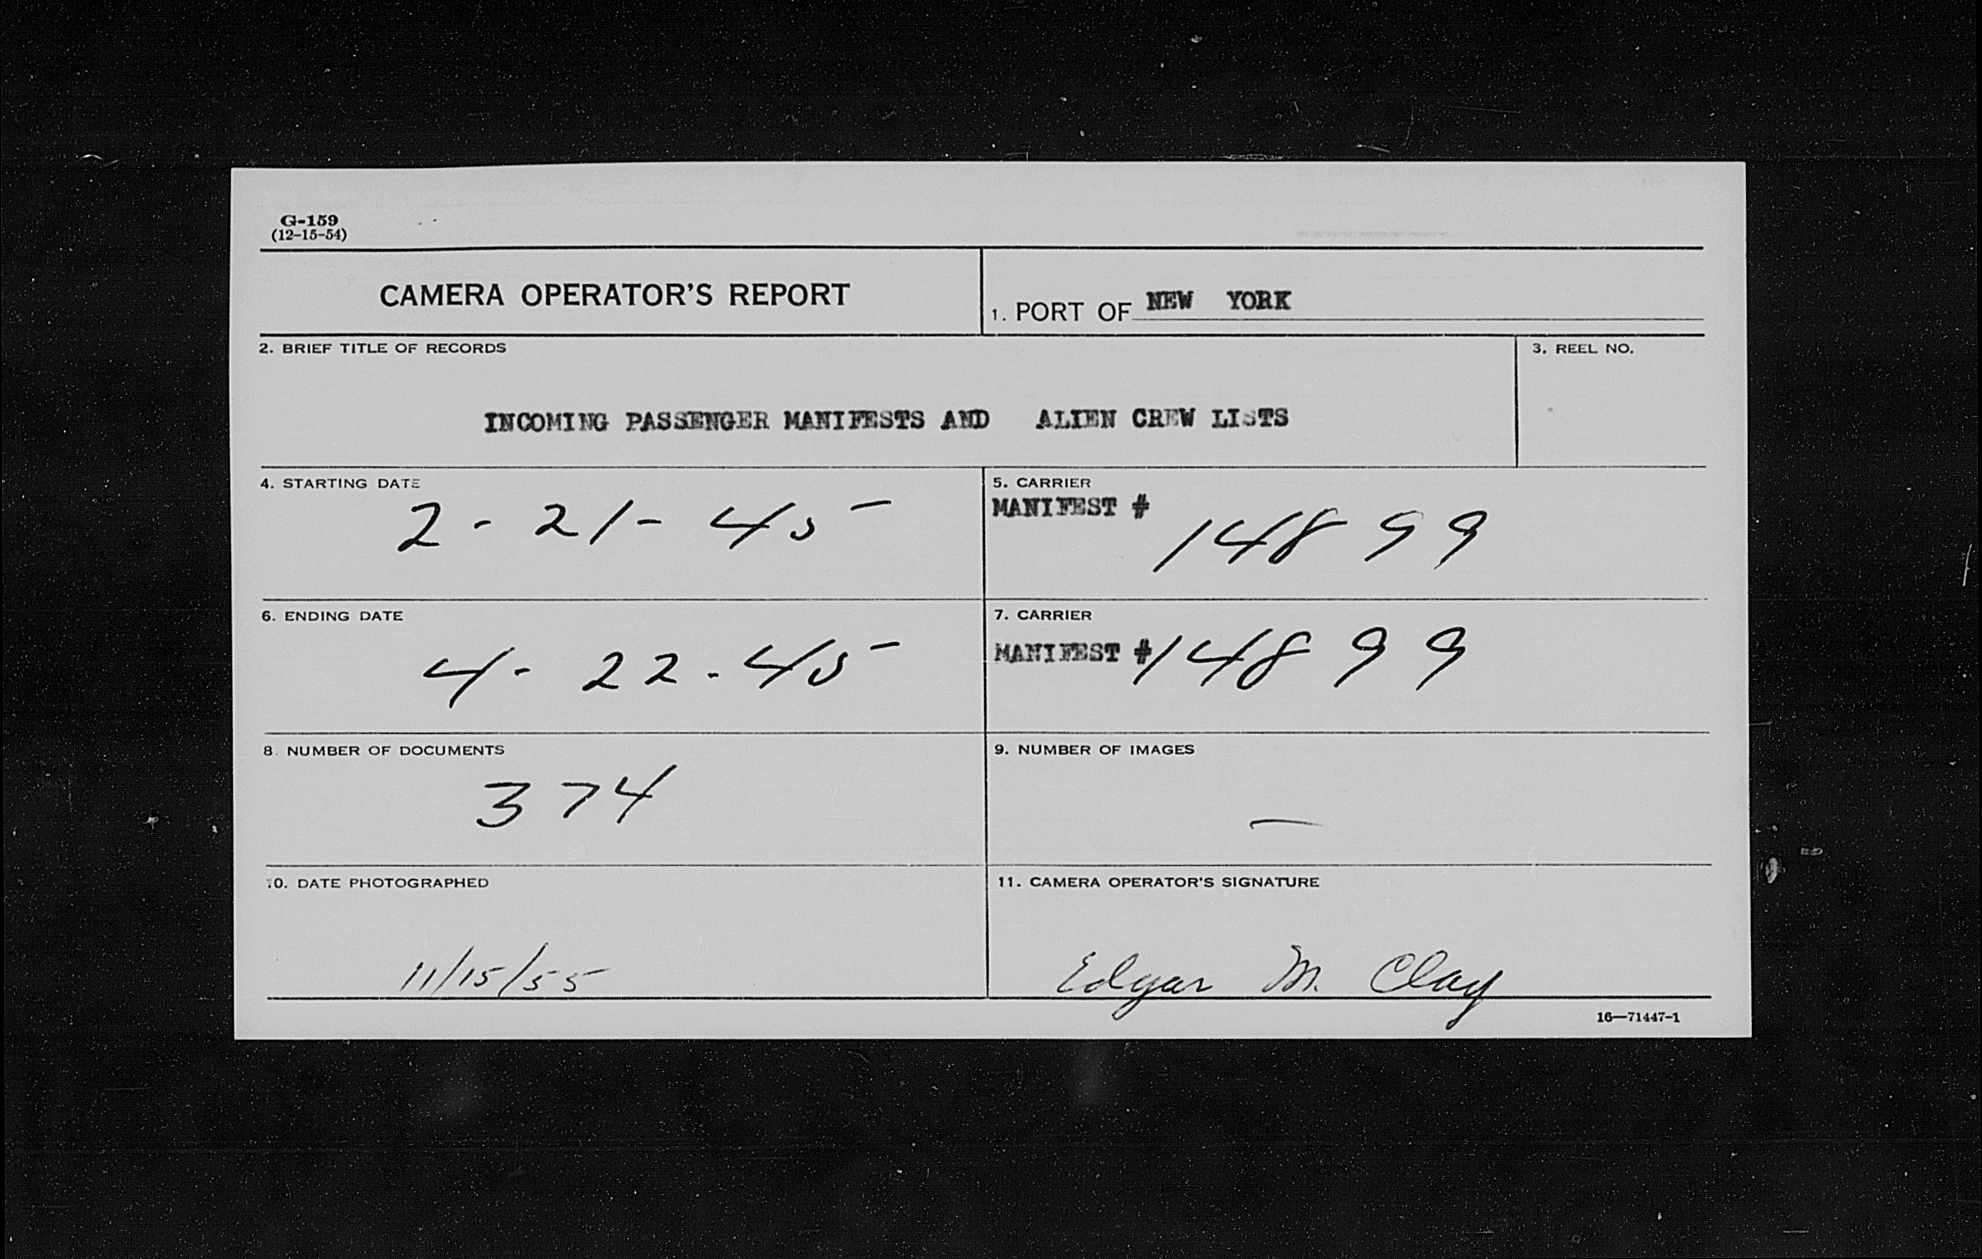 G-159
(12-15-54)
CAMERA OPERATOR'S REPORT
1. PORT OF NEW YORK
2. BRIEF TITLE OF RECORDS
3. REEL NO.
INCOMING PASSENGER MANIFESTS AND ALIEN CREW LISTS
4. STARTING DATE
2 - 21 - 45
5. CARRIER
MANIFEST # 14899
6. ENDING DATE
4 - 22 - 45
7. CARRIER
MANIFEST # 14899
8. NUMBER OF DOCUMENTS
374
9. NUMBER OF IMAGES
—
10. DATE PHOTOGRAPHED
11/15/55
11. CAMERA OPERATOR'S SIGNATURE
Edgar M. Clay
16—71447-1